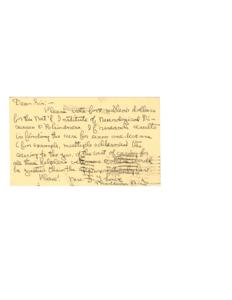 Dear Sir:-
Please vote for million dollars
for the Nat'l Institute of Neurological Di-
seases & Blindness. If research results
in finding the cure for even one disease
(for example, multiple sclerosis) the
saving to the gov. of the cost of caring for
all these helpless would
be greater than the
Please!